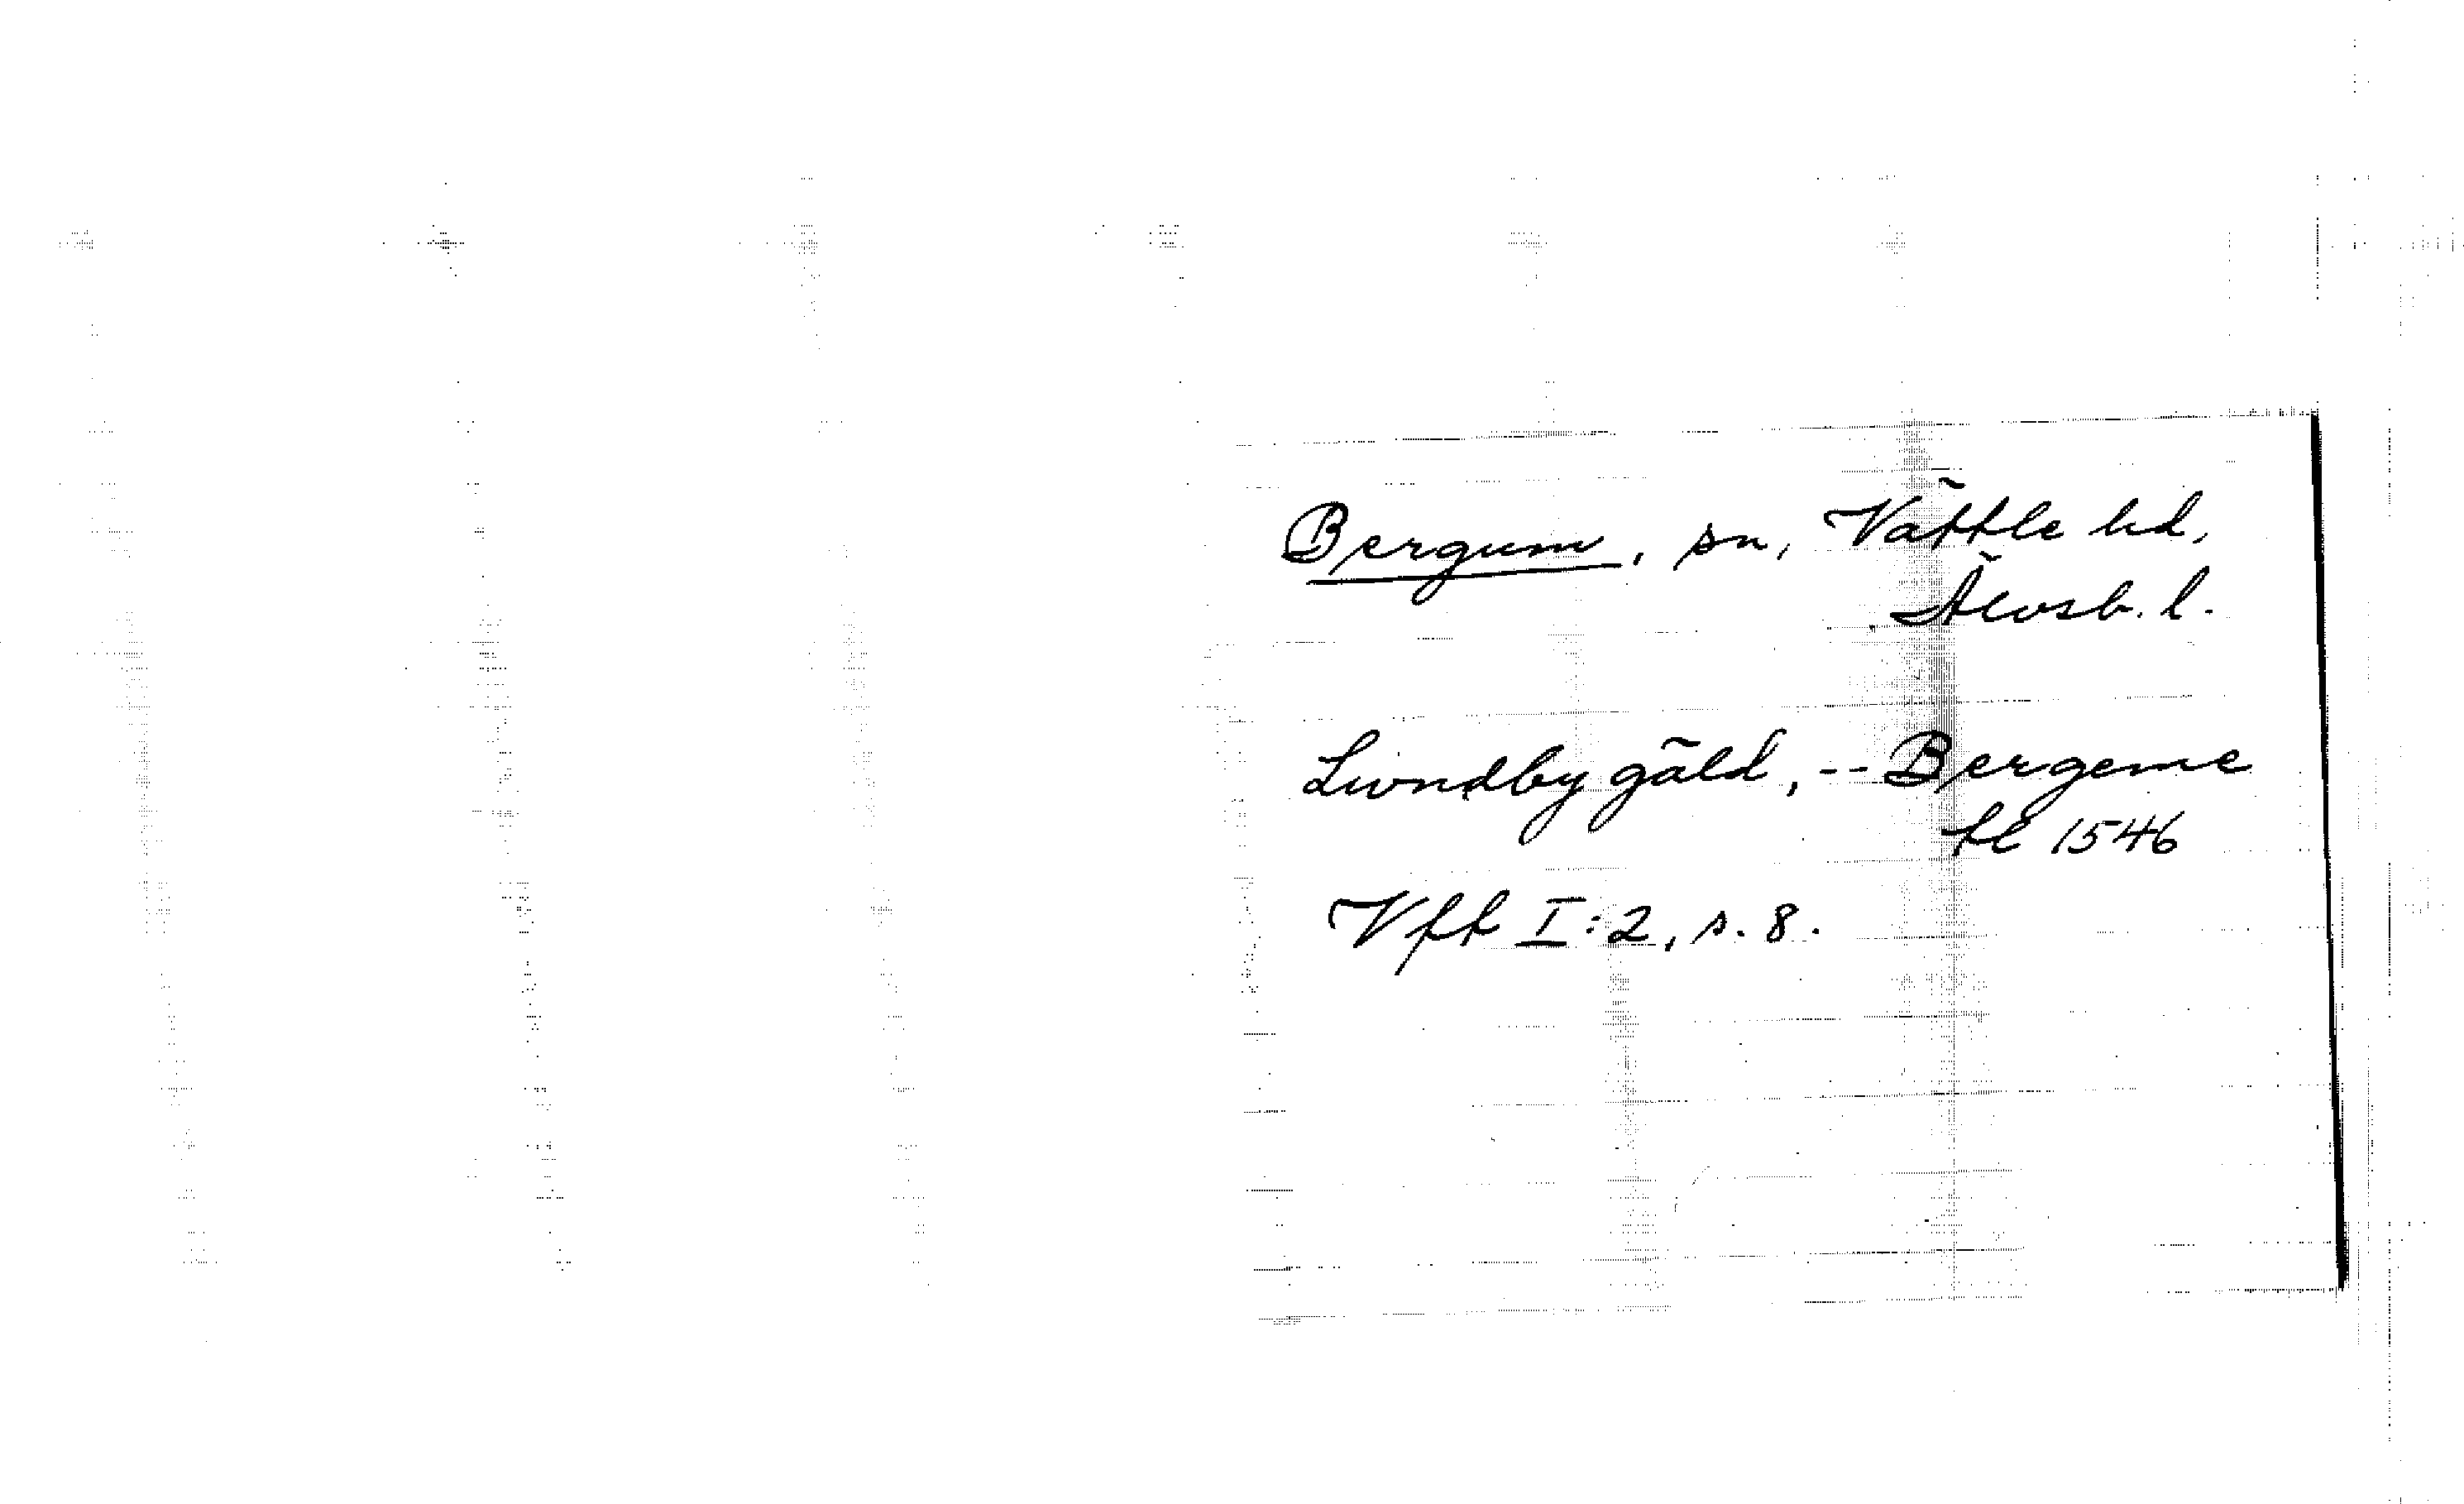 Bergum, sn, Vättle hd,
Älvsb. l.
Lundby gäld, -- Bergeme
tl 1546
Vft I:2, s. 8.